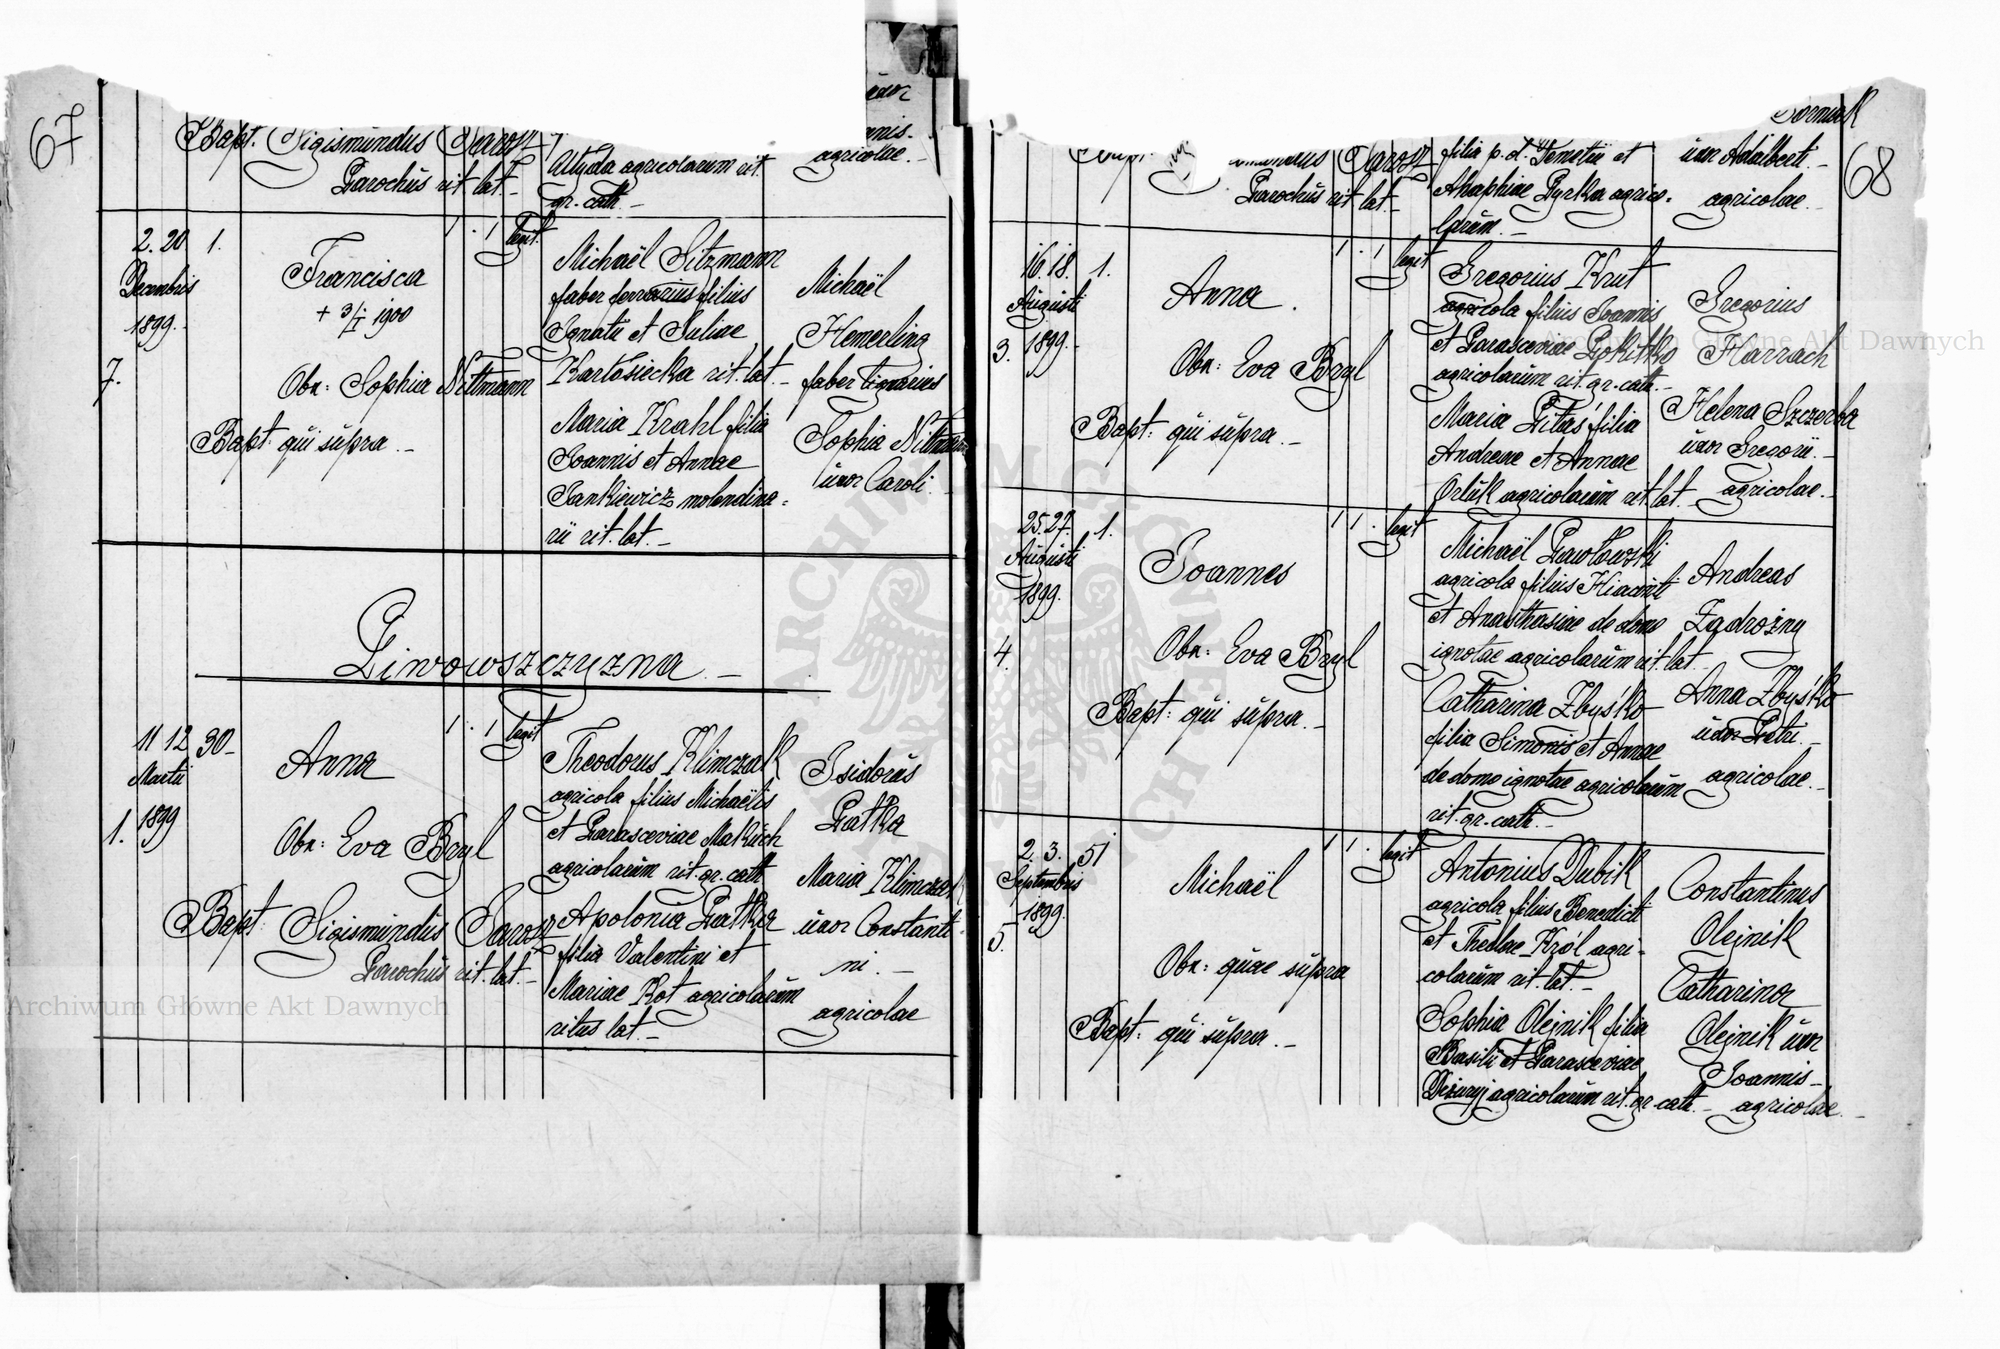 67
Bapt. Sigismundus
Parochus rit. lat. –
agricolarum rit.
gr. cath. –
agricolae. –
2. 20
Decembris
1899. –
7.
1.
Francisca
+ 3/I 1900
Obx: Sophia Nittmann
Bapt: qui supra. –
1 · 1 legit.
Michaël Sitzmann
faber ferrarius filius
Ignatii et Juliae
rit. lat. –
Maria Krahl filia
Joannis et Annae
Jankiewicz molendina=
rii rit. lat. –
Michaël
Hemerling
faber lignarius
Sophia Nittmann
uxor Caroli.
Piwowszczyzna. –
11 12
Martii
1899
1.
30 –
Anna
Obx: Eva Bryl
Bapt: Sigismundus
Parochus rit. lat. –
1 · 1 legit
Theodorus Klimczak
agricola filius Michaëlis
et Parasceviae Makuch
agricolarum rit. gr. cath
Apolonia Patka
filia Valentini et
Mariae Kot agricolarum
ritus lat. –
Isidorus
Patka
Maria Klimczak
uxor Constanti
ni. –
agricolae
68
Parochus rit. lat. –
filia p. d. et
agrico=
larum. –
uxor Adalberti –
agricolae. –
16. 18.
Augusti
1899. –
3.
1.
Anna.
Obx: Eva Bryl
Bapt: qui supra. –
1 · 1 legit
Gregorius Krut
agricola filius Joannis
et Parasceviae
agricolarum rit. gr. cath. –
Maria Pituś filia
Andreae et Annae
Orluk agricolarum rit. lat. –
Gregorius
Harrach
Helena Szczerba
uxor Gregorii. –
agricolae. –
25. 27.
Augusti
1899.
4.
1.
Joannes
Obx: Eva Bryl
Bapt: qui supra. –
1 1 · legit
Michaël Pawłowski
agricola filius Hiacinti
et Anasthasiae de domo
ignotae agricolarum rit. lat. –
Catharina Zbyśko
filia Simonis et Annae
de domo ignotae agricolarum
rit. gr. cath. –
Andreas
Zadrożny
Anna Zbyśko
uxor Petri. –
agricolae. –
2. 3.
Septembris
1899.
5.
51
Michaël
Obx: quae supra
Bapt: qui supra. –
1 1 · legit
Antonius Dubik
agricola filius Benedicti
et Theclae Król agri=
colarum rit. lat. –
Sophia Olejnik filia
Basilii et Parasceviae
agricolarum rit. gr. cath. –
Constantinus
Olejnik
Catharina
Olejnik uxor
Joannis –
agricolae. –
Archiwum Główne Akt Dawnych
Archiwum Główne Akt Dawnych